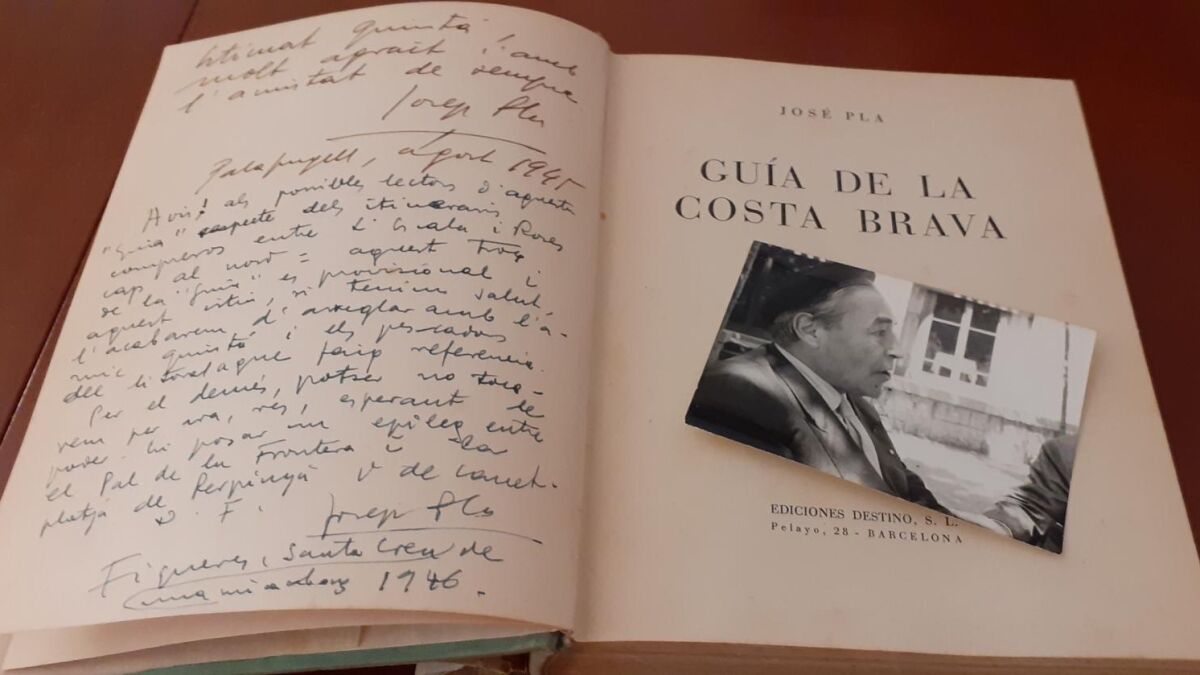 Estimat Quintà! amb
molt agraït i amb
l'amistat de sempre
Josep Pla
Palafrugell, agost 1945
Avis! als possibles lectors d'aquesta
"Guia" respecte dels itineraris
compresos entre L'Escala i Roses
cap al nord = aquest troç
de la "Guia" es provisional i
aquest istiu, si tenim salut,
l'acabarem d'arreglar amb l'a-
mic Quintà i els pescadors
del litoral a que faig referencia.
Per el demés, potser no toca-
rem per ara, res, esperant de
poder hi posar un epileg entre
el Pal de la Frontera i la
platja de Perpinyà o de Canet-
D. F. Josep Pla
Figueres, Santa Creu de
1946.
JOSÉ PLA
GUÍA DE LA
COSTA BRAVA
EDICIONES DESTINO, S. L.
Pelayo, 28 - BARCELONA